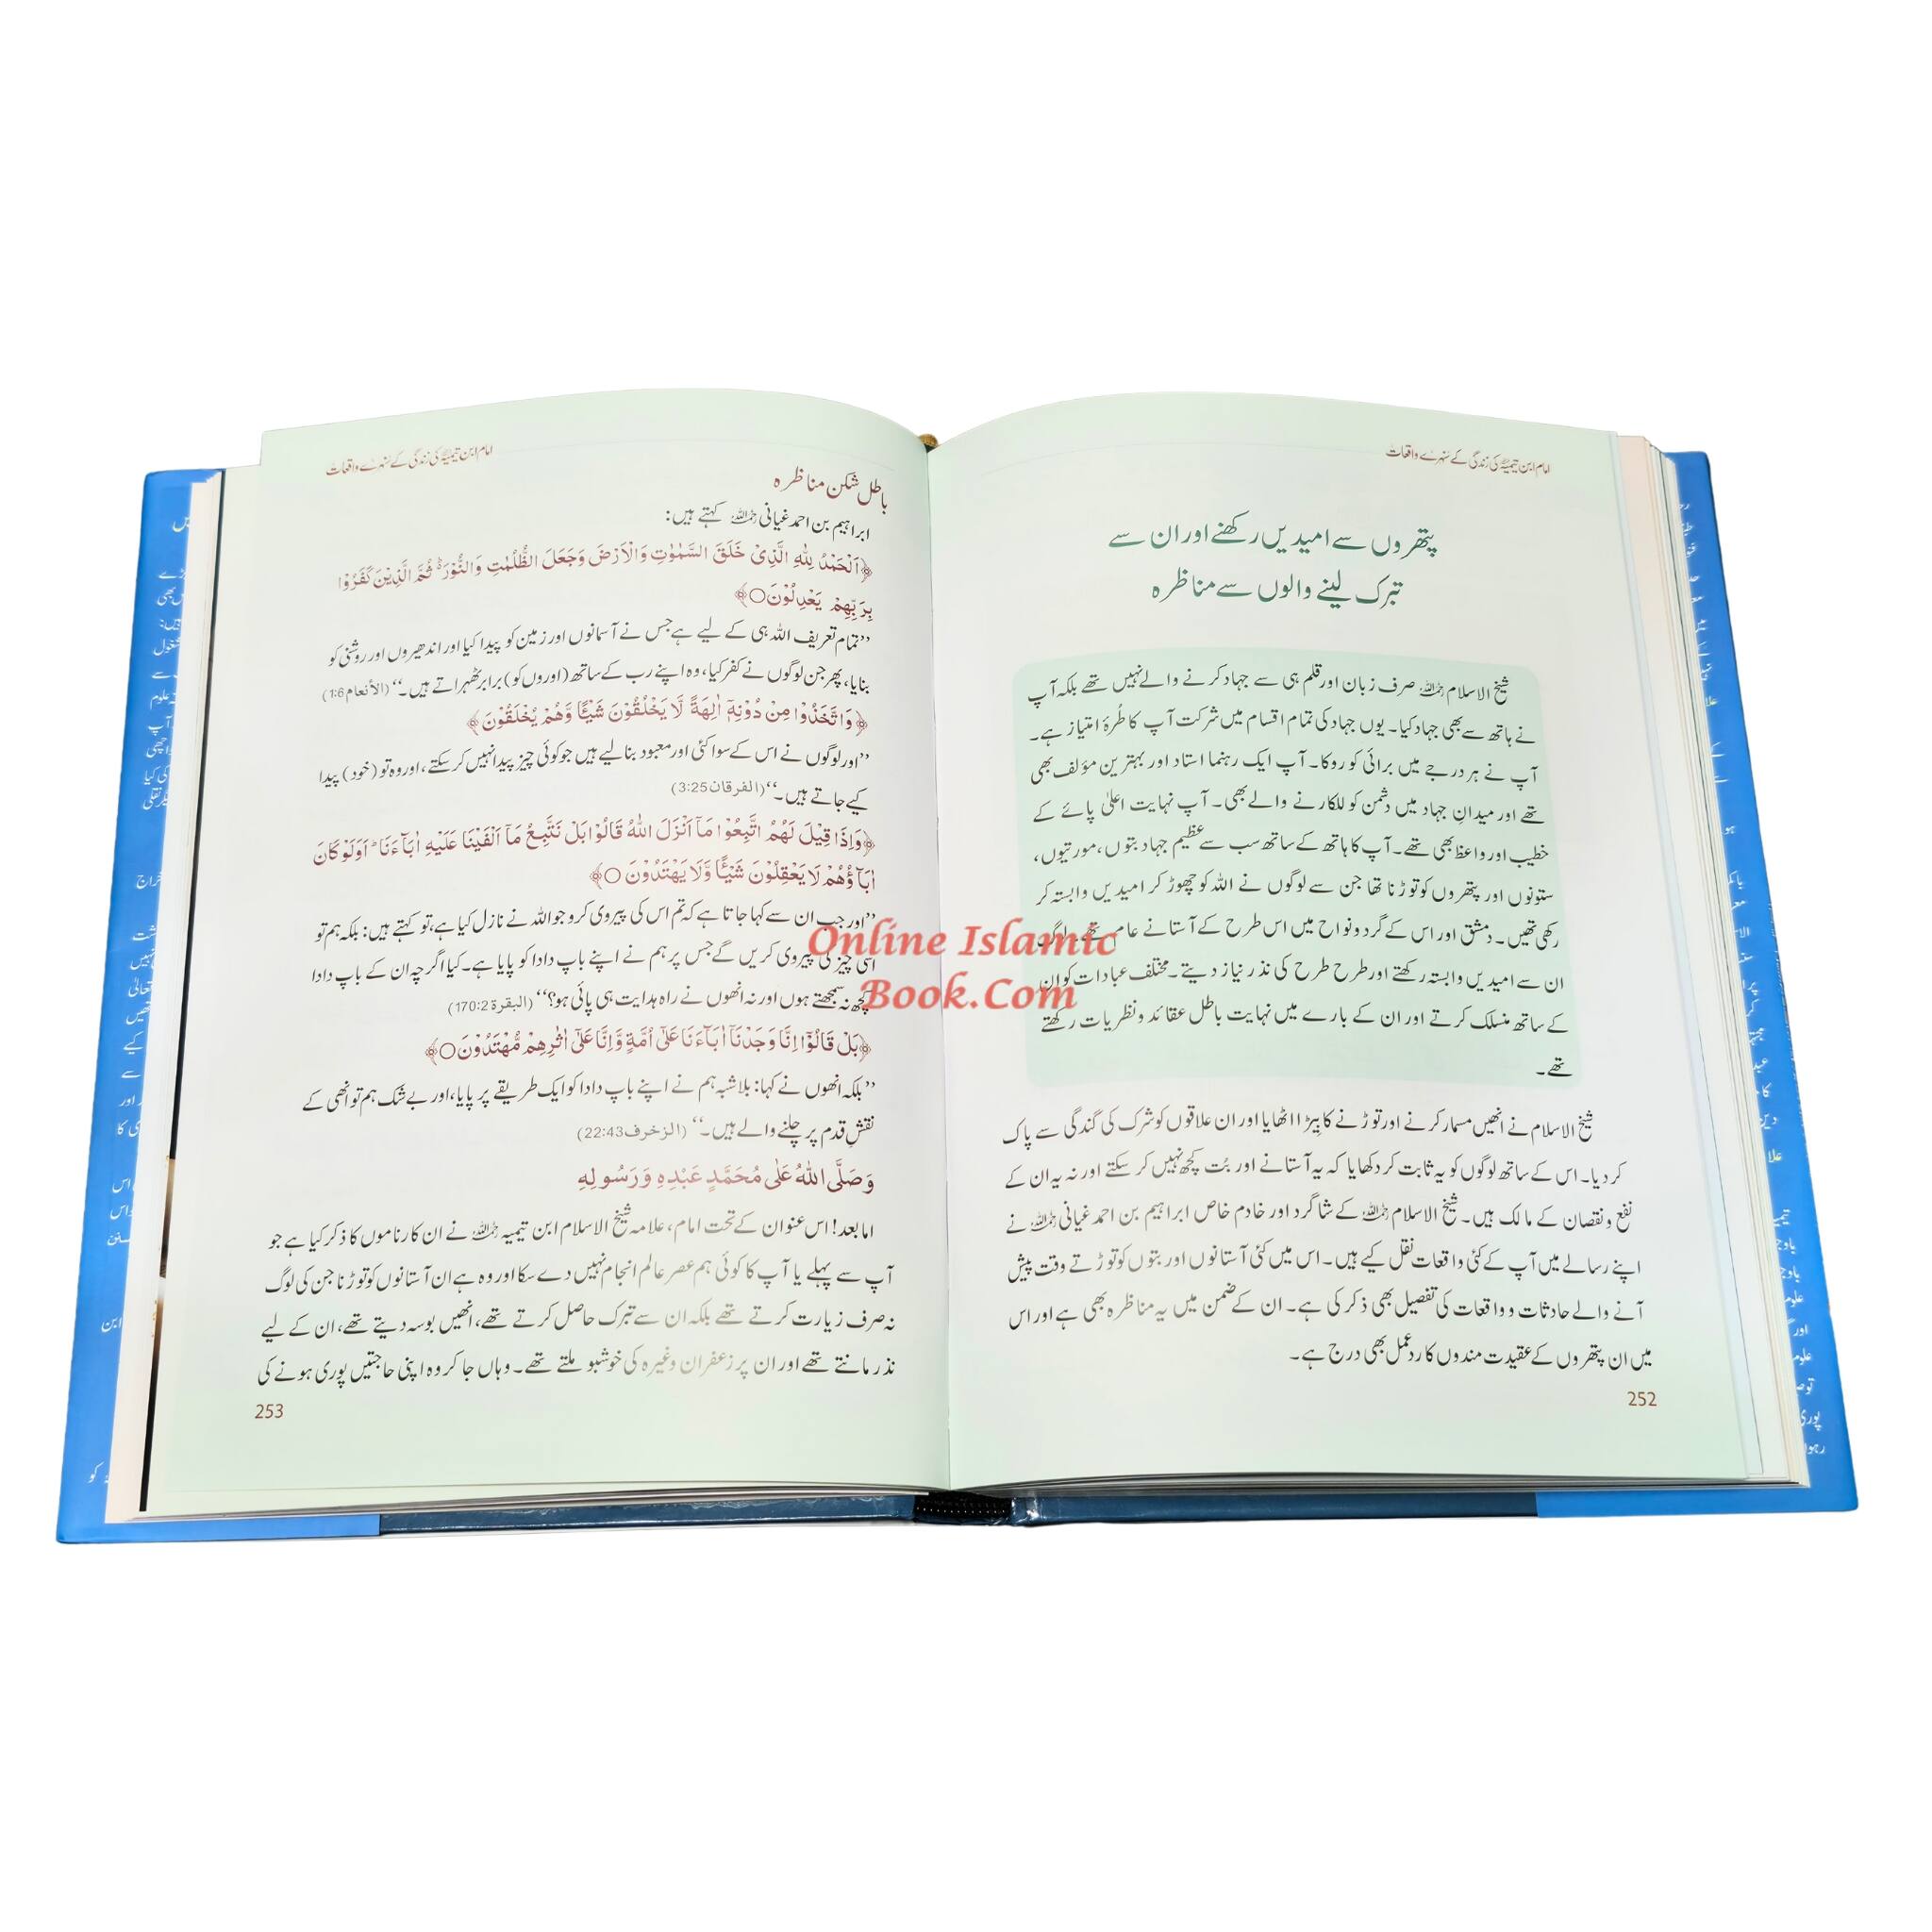 امام ابن تیمیہ کی زندگی کے سنہرے واقعات
پتھروں سے امیدیں رکھنے اور ان سے
تبرک لینے والوں سے مناظرہ
شیخ الاسلام رحمہ اللہ صرف زبان اور قلم ہی سے جہاد کرنے والے نہیں تھے بلکہ آپ
نے ہاتھ سے بھی جہاد کیا۔ یوں جہاد کی تمام اقسام میں شرکت آپ کا طُرۂ امتیاز ہے۔
آپ نے ہر درجے میں برائی کو روکا۔ آپ ایک رہنما استاد اور بہترین مؤلف بھی
تھے اور میدانِ جہاد میں دشمن کو للکارنے والے بھی۔ آپ نہایت اعلیٰ پائے کے
خطیب اور واعظ بھی تھے۔ آپ کا ہاتھ کے ساتھ سب سے عظیم جہاد بتوں، مورتیوں،
ستونوں اور پتھروں کو توڑنا تھا جن سے لوگوں نے اللہ کو چھوڑ کر امیدیں وابستہ کر
رکھی تھیں۔ دمشق اور اس کے گرد و نواح میں اس طرح کے آستانے عام تھے۔ لوگ
ان سے امیدیں وابستہ رکھتے اور طرح طرح کی نذر نیاز دیتے۔ مختلف عبادات کو ان
کے ساتھ منسلک کرتے اور ان کے بارے میں نہایت باطل عقائد و نظریات رکھتے
تھے۔
شیخ الاسلام نے انھیں مسمار کرنے اور توڑنے کا بیڑا اٹھایا اور ان علاقوں کو شرک کی گندگی سے پاک
کر دیا۔ اس کے ساتھ لوگوں کو یہ ثابت کر دکھایا کہ یہ آستانے اور بُت کچھ نہیں کر سکتے اور نہ یہ ان کے
نفع و نقصان کے مالک ہیں۔ شیخ الاسلام رحمہ اللہ کے شاگرد اور خادم خاص ابراہیم بن احمد غیانی رحمہ اللہ نے
اپنے رسالے میں آپ کے کئی واقعات نقل کیے ہیں۔ اس میں کئی آستانوں اور بتوں کو توڑتے وقت پیش
آنے والے حادثات و واقعات کی تفصیل بھی ذکر کی ہے۔ ان کے ضمن میں یہ مناظرہ بھی ہے اور اس
میں ان پتھروں کے عقیدت مندوں کا ردعمل بھی درج ہے۔
252
امام ابن تیمیہ کی زندگی کے سنہرے واقعات
باطل شکن مناظرہ
ابراہیم بن احمد غیانی رحمہ اللہ کہتے ہیں:
﴿اَلْحَمْدُ لِلّٰهِ الَّذِیْ خَلَقَ السَّمٰوٰتِ وَالْاَرْضَ وَجَعَلَ الظُّلُمٰتِ وَالنُّوْرَ ۬ ثُمَّ الَّذِیْنَ كَفَرُوْا
بِرَبِّهِمْ یَعْدِلُوْنَ○﴾
’’تمام تعریف اللہ ہی کے لیے ہے جس نے آسمانوں اور زمین کو پیدا کیا اور اندھیروں اور روشنی کو
بنایا، پھر جن لوگوں نے کفر کیا، وہ اپنے رب کے ساتھ (اوروں کو) برابر ٹھہراتے ہیں۔‘‘ (الأنعام 1:6)
﴿وَاتَّخَذُوْا مِنْ دُوْنِهٖۤ اٰلِهَةً لَّا یَخْلُقُوْنَ شَیْـًٔا وَّهُمْ یُخْلَقُوْنَ﴾
’’اور لوگوں نے اس کے سوا کئی اور معبود بنا لیے ہیں جو کوئی چیز پیدا نہیں کر سکتے، اور وہ تو (خود) پیدا
کیے جاتے ہیں۔‘‘ (الفرقان 3:25)
﴿وَاِذَا قِیْلَ لَهُمُ اتَّبِعُوْا مَاۤ اَنْزَلَ اللّٰهُ قَالُوْا بَلْ نَتَّبِعُ مَاۤ اَلْفَیْنَا عَلَیْهِ اٰبَآءَنَا ؕ اَوَلَوْ كَانَ
اٰبَآؤُهُمْ لَا یَعْقِلُوْنَ شَیْـًٔا وَّلَا یَهْتَدُوْنَ○﴾
’’اور جب ان سے کہا جاتا ہے کہ تم اس کی پیروی کرو جو اللہ نے نازل کیا ہے، تو کہتے ہیں: بلکہ ہم تو
اسی چیز کی پیروی کریں گے جس پر ہم نے اپنے باپ دادا کو پایا ہے۔ کیا اگرچہ ان کے باپ دادا
کچھ نہ سمجھتے ہوں اور نہ انھوں نے راہ ہدایت ہی پائی ہو؟‘‘ (البقرة 170:2)
﴿بَلْ قَالُوْۤا اِنَّا وَجَدْنَاۤ اٰبَآءَنَا عَلٰۤی اُمَّةٍ وَّاِنَّا عَلٰۤی اٰثٰرِهِمْ مُّهْتَدُوْنَ○﴾
’’بلکہ انھوں نے کہا: بلاشبہ ہم نے اپنے باپ دادا کو ایک طریقے پر پایا، اور بے شک ہم تو انھی کے
نقشِ قدم پر چلنے والے ہیں۔‘‘ (الزخرف 22:43)
وَصَلَّی اللّٰهُ عَلٰی مُحَمَّدٍ عَبْدِهٖ وَرَسُوْلِهٖ
اما بعد! اس عنوان کے تحت امام، علامہ شیخ الاسلام ابن تیمیہ رحمہ اللہ نے ان کارناموں کا ذکر کیا ہے جو
آپ سے پہلے یا آپ کا کوئی ہم عصر عالم انجام نہیں دے سکا اور وہ ہے ان آستانوں کو توڑنا جن کی لوگ
نہ صرف زیارت کرتے تھے بلکہ ان سے تبرک حاصل کرتے تھے، انھیں بوسہ دیتے تھے، ان کے لیے
نذر مانتے تھے اور ان پر زعفران وغیرہ کی خوشبو ملتے تھے۔ وہاں جا کر وہ اپنی حاجتیں پوری ہونے کی
253
Online Islamic
Book.Com